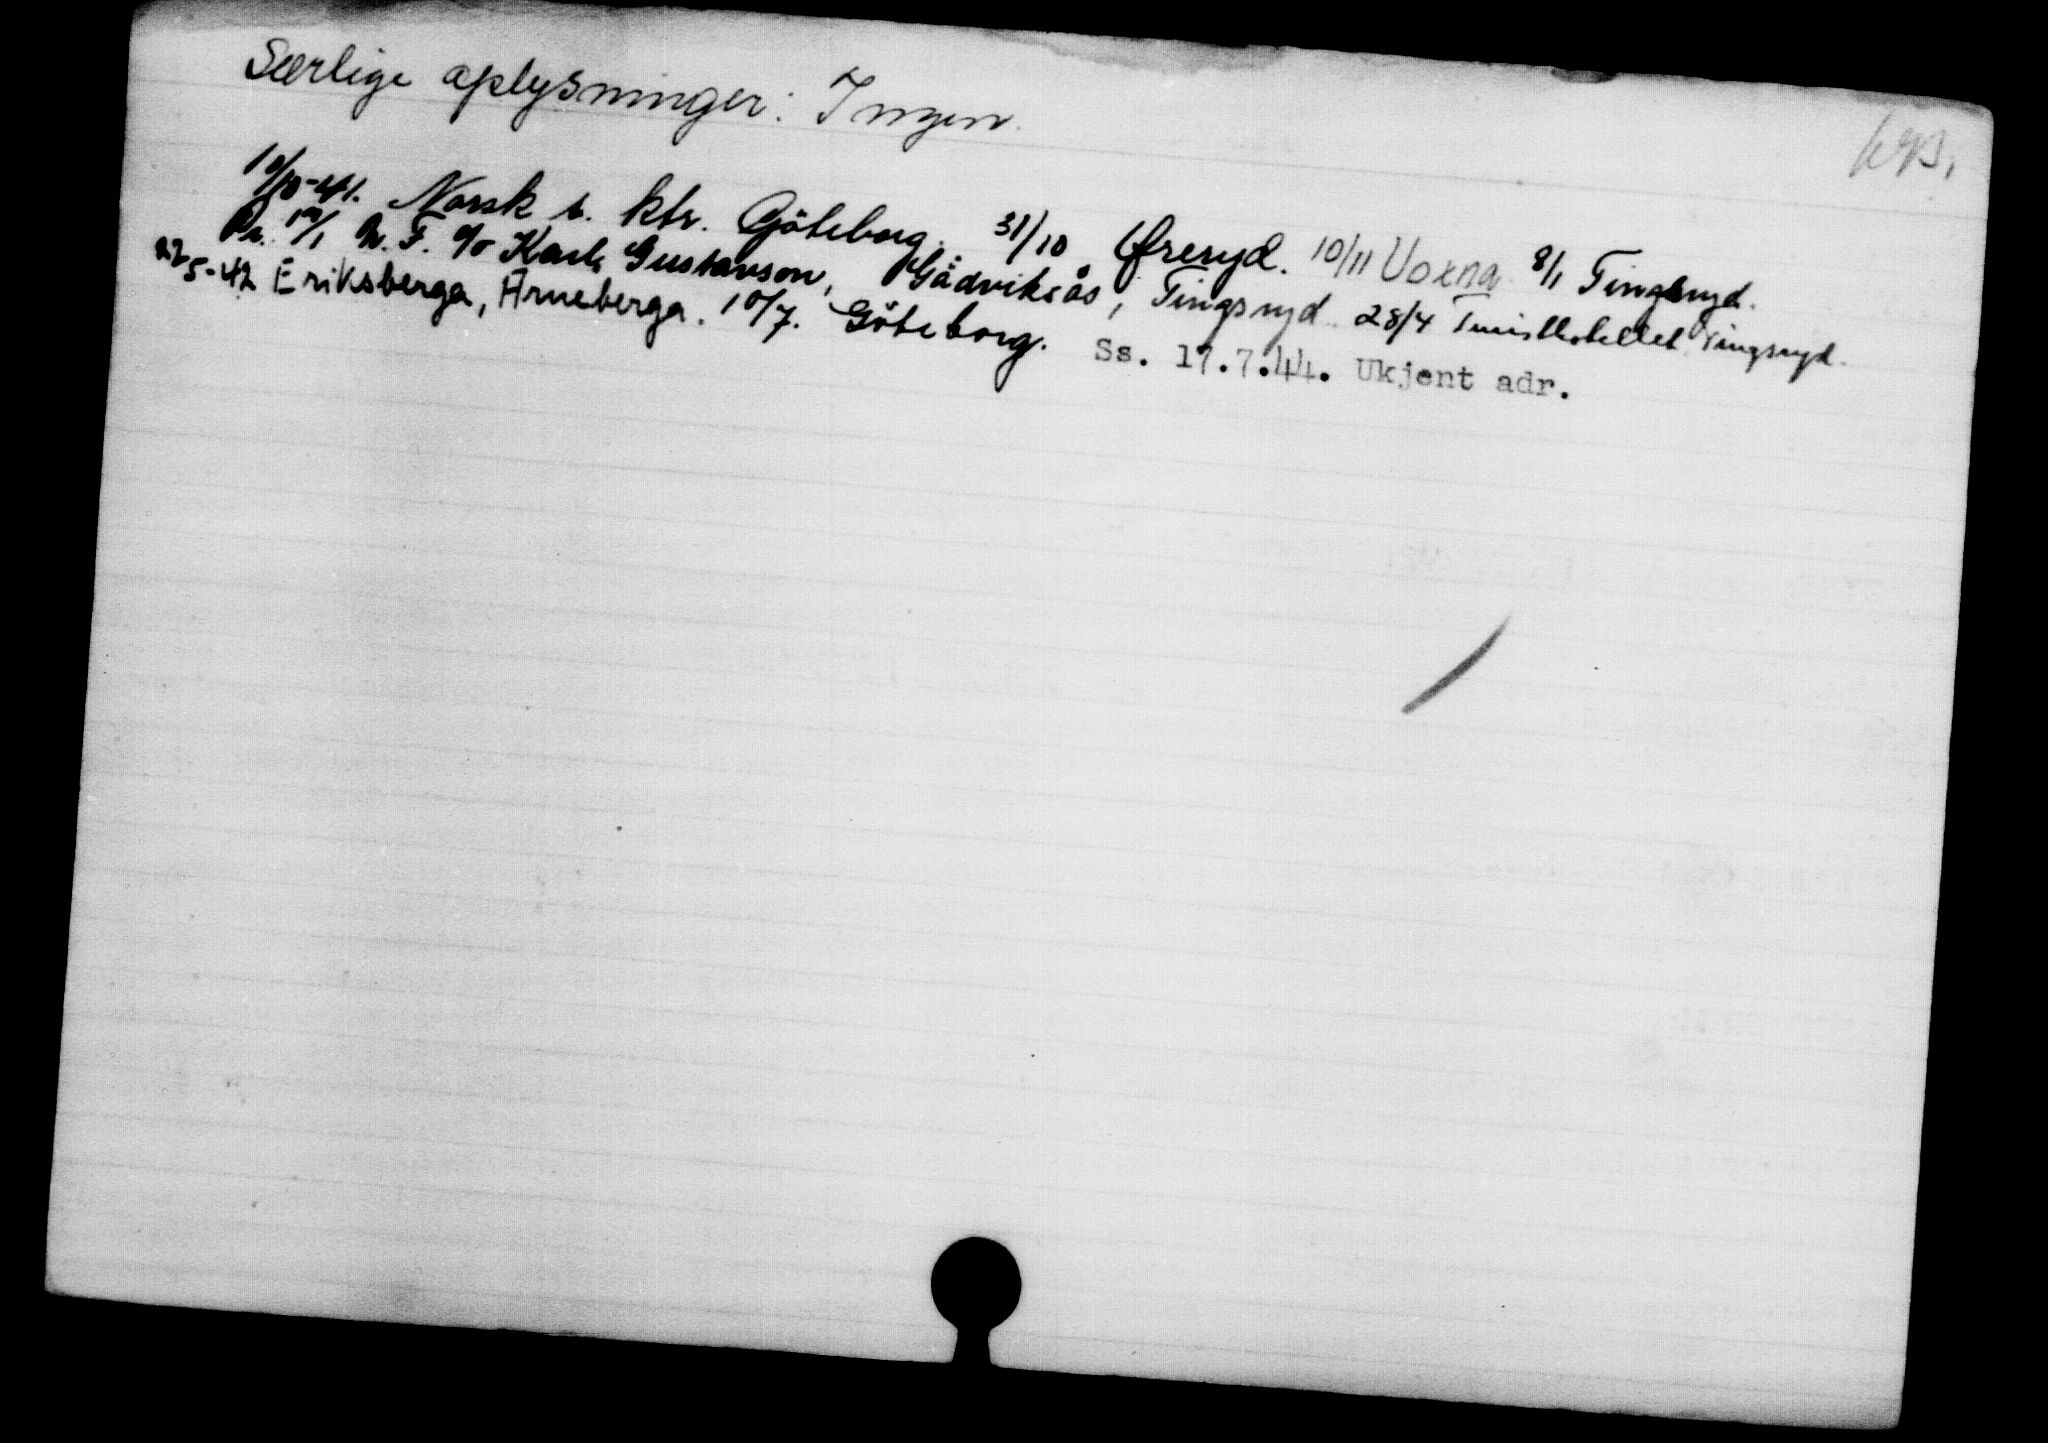 Særlige oplysninger: Ingen.
10/10-41. Norsk s. ktr. Göteborg. 31/10 Øreryd. 10/11 Voxna 8/1 Tingsryd.
Pr. 1/1 N.F. c/o Karl Gustavson, Gädviksås, Tingsryd. 28/4 Turisthotellet Tingsryd.
22/5-42 Eriksberga, Ärneberga. 10/7. Göteborg. Ss. 17.7.44. Ukjent adr.